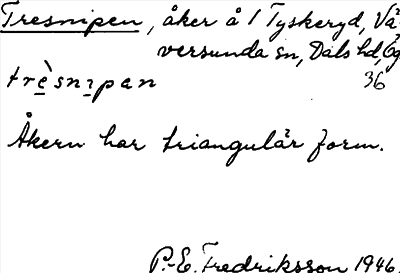 Tresnipen, åker å 1 Tyskeryd, Vä-
versunda sn, Dals hd, Ög
trèsnıpan 36
Åkern har triangulär form.
P.-E. Fredriksson 1946.